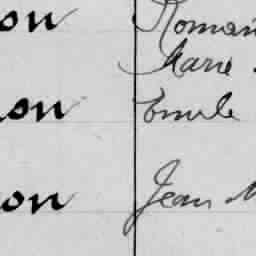 on Roman
Marie
on Emile
on Jean M